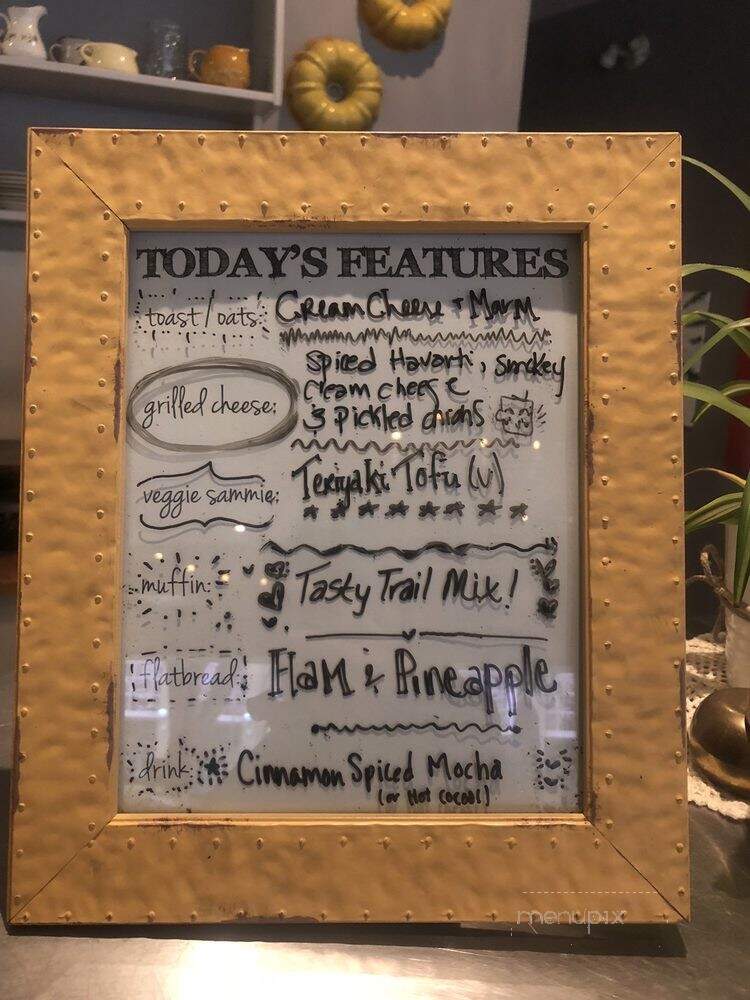 TODAY'S FEATURES
toast/oats: Cream Cheese + Marm
grilled cheese: Spiced Havarti, Smokey
Cream cheese
& Pickled onions
veggie sammie: Teriyaki Tofu (v)
muffin: Tasty Trail Mix!
flatbread: Ham & Pineapple
drink: Cinnamon Spiced Mocha
(or Hot Cocoa!)
menupix